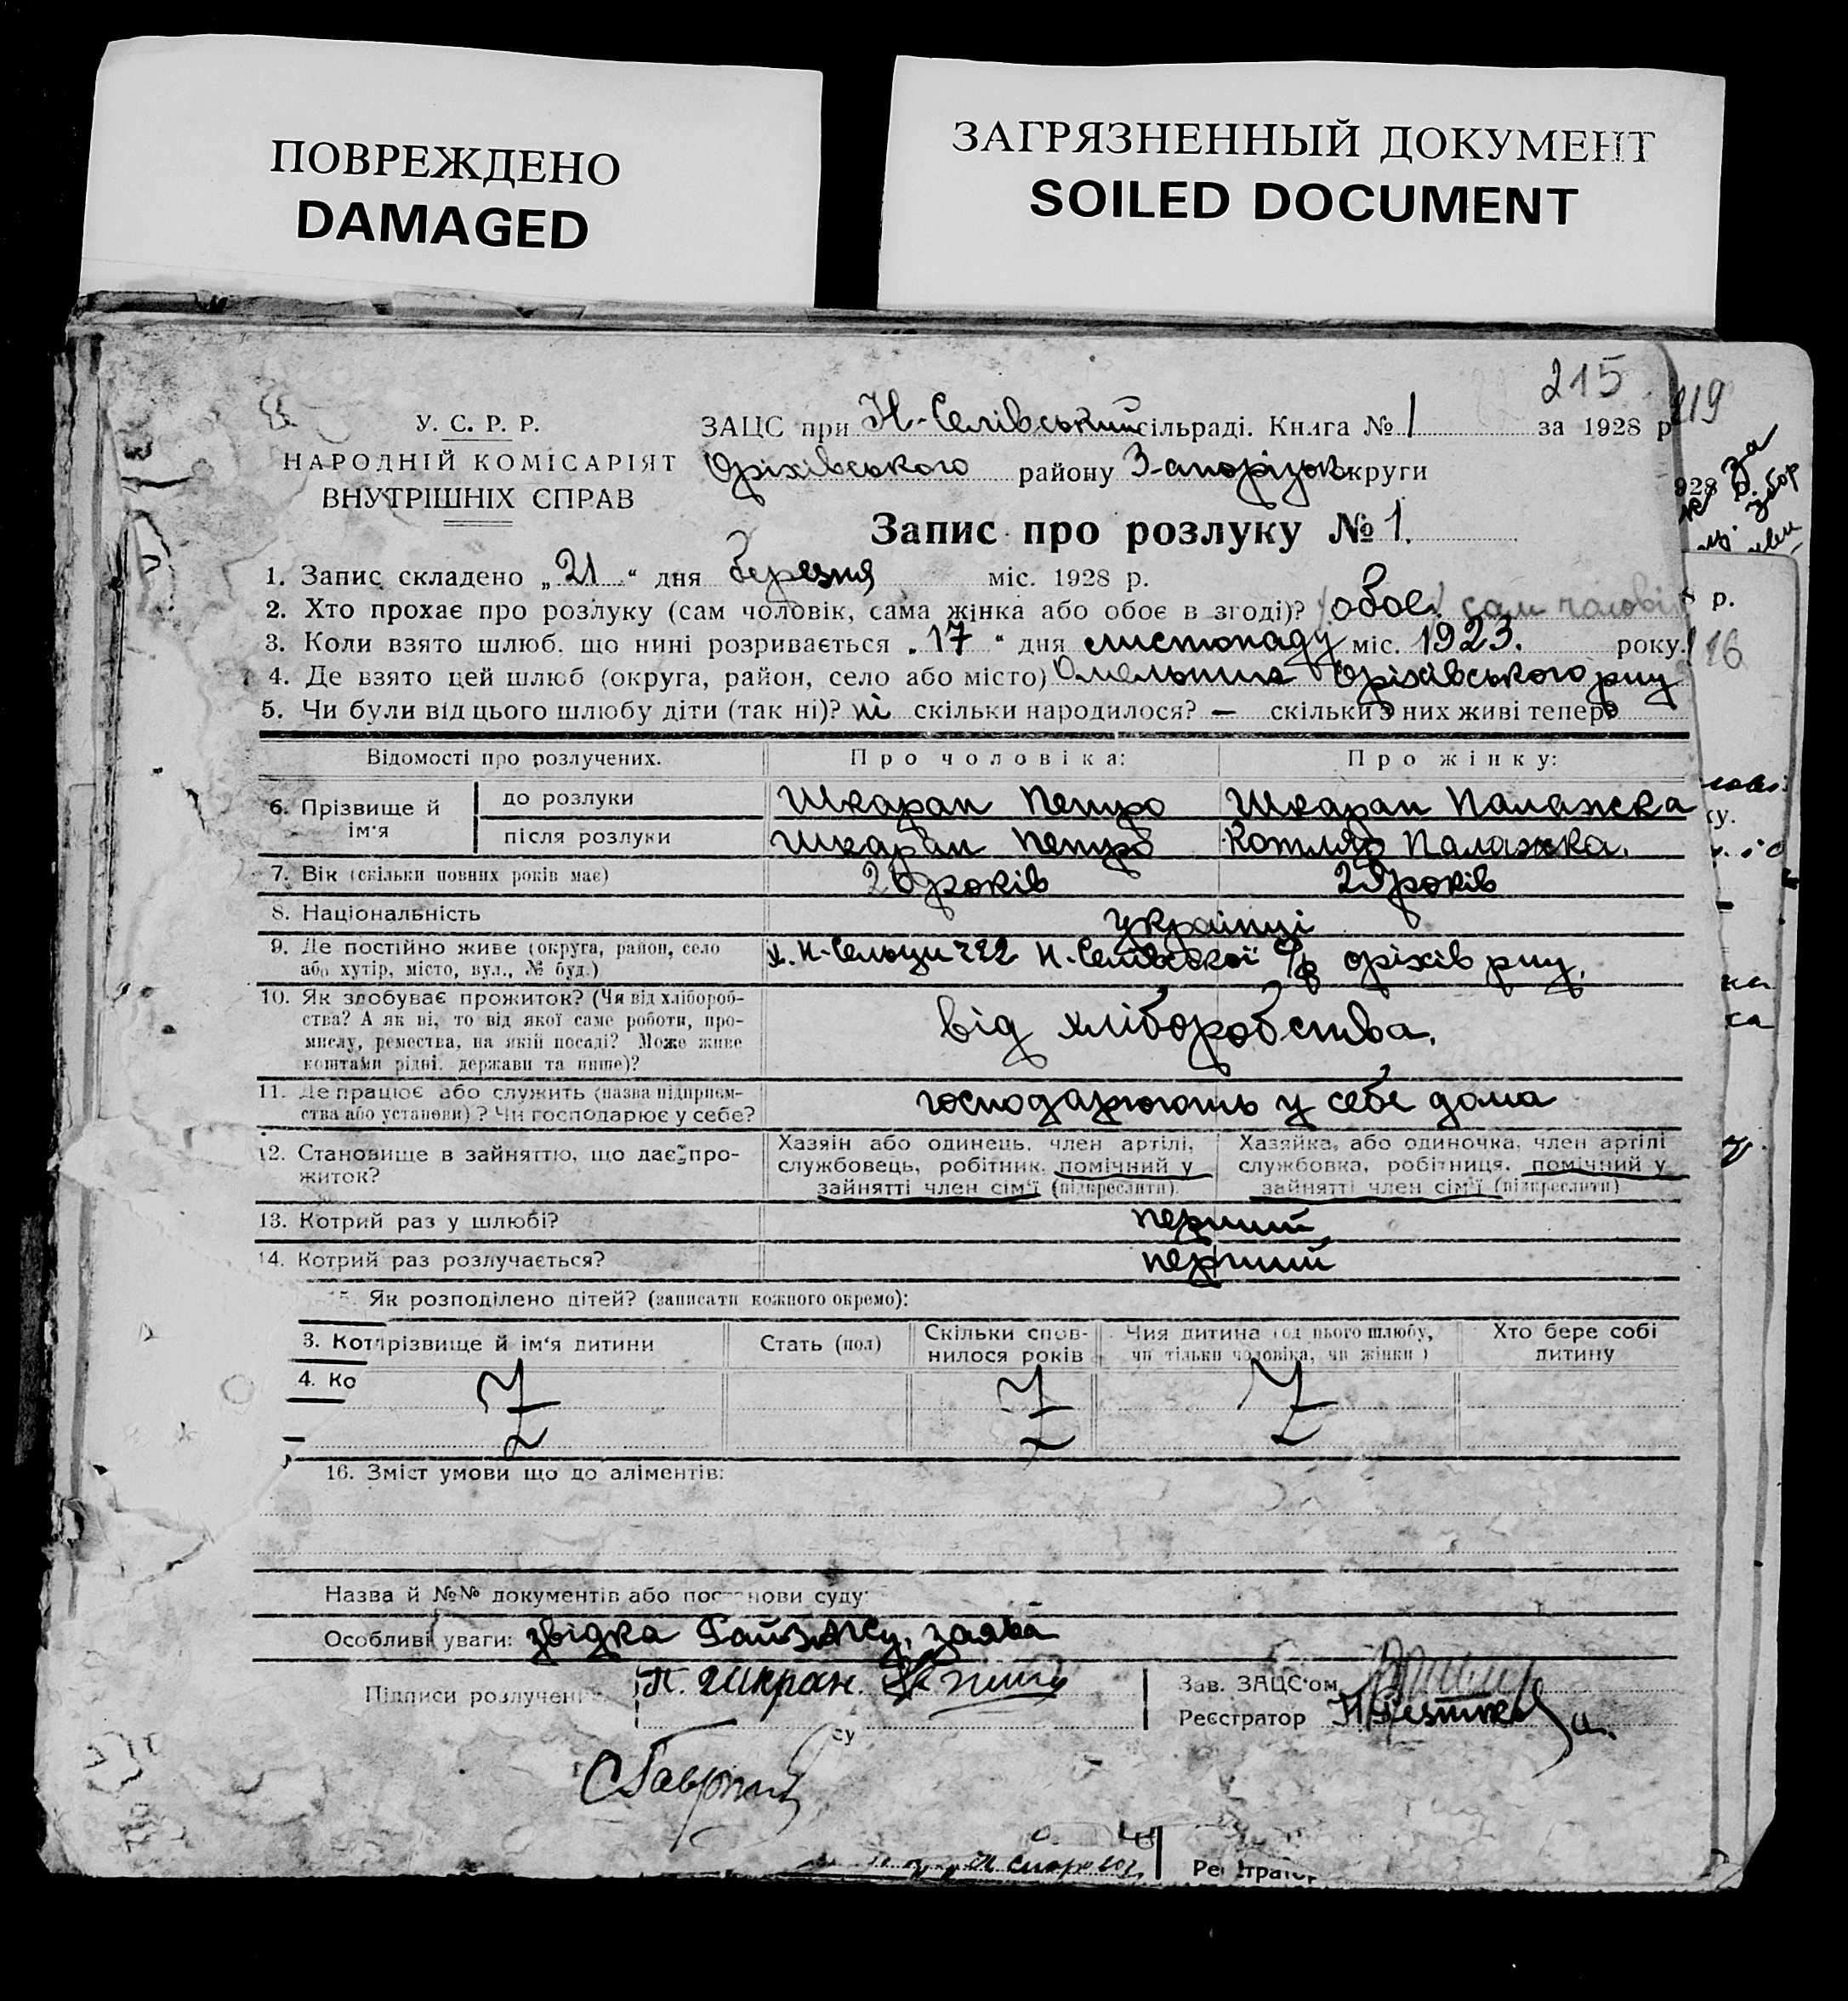 ПОВРЕЖДЕНО
DAMAGED
ЗАГРЯЗНЕННЫЙ ДОКУМЕНТ
SOILED DOCUMENT
215
219
У. С. Р. Р.
НАРОДНІЙ КОМІСАРІЯТ
ВНУТРІШНІХ СПРАВ
ЗАЦС при Н-Селівський сільраді. Книга № 1 за 1928 р
Оріхівського району З-апорізьк округи
Запис про розлуку № 1.
1. Запис складено „21“ дня березня міс. 1928 р.
2. Хто прохає про розлуку (сам чоловік, сама жінка або обоє в згоді)? обоє. сам чоловік
3. Коли взято шлюб, що нині розривається „17“ дня листопаду міс. 1923. року.
4. Де взято цей шлюб (округа, район, село або місто) Омельник Оріхівського р-ну
5. Чи були від цього шлюбу діти (так ні)? ні скільки народилося? — скільки з них живі тепер
Відомості про розлучених. Про чоловіка: Про жінку:
6. Прізвище й ім'я до розлуки Шкарап Петро Шкарап Палажка
після розлуки Шкарап Петро Котляр Палажка.
7. Вік (скільки повних років має) років років
8. Національність українці
9. Де постійно живе (округа, район, село або хутір, місто, вул., № буд.) х. Н-Сельци Н-Селівської с/р оріхів р-ну.
10. Як здобуває прожиток? (Чи від хлібороб-
ства? А як ні, то від якої саме роботи, про-
мислу, ремества, на якій посаді? Може живе
коштами рідні, держави та інше)?
від хліборобства.
11. Де працює або служить (назва підприєм-
ства або установи)? Чи господарює у себе?
господарюють у себе дома
12. Становище в зайняттю, що дає про-
житок?
Хазяїн або одинець, член артілі,
службовець, робітник, помічний у
зайнятті член сім'ї (підкреслити).
Хазяйка, або одиночка, член артілі
службовка, робітниця, помічний у
зайнятті член сім'ї (підкреслити)
13. Котрий раз у шлюбі? перший
14. Котрий раз розлучається? перший
15. Як розподілено дітей? (записати кожного окремо):
3. Кот
різвище й ім'я дитини
Стать (пол)
Скільки спов-
нилося років
Чия дитина (од цього шлюбу,
чи тільки чоловіка, чи жінки)
Хто бере собі
дитину
4. Ко
16. Зміст умови що до аліментів:
Назва й №№ документів або постанови суду:
Особливі уваги: заява
Підписи розлучен
Зав. ЗАЦС'ом
Реєстратор
су